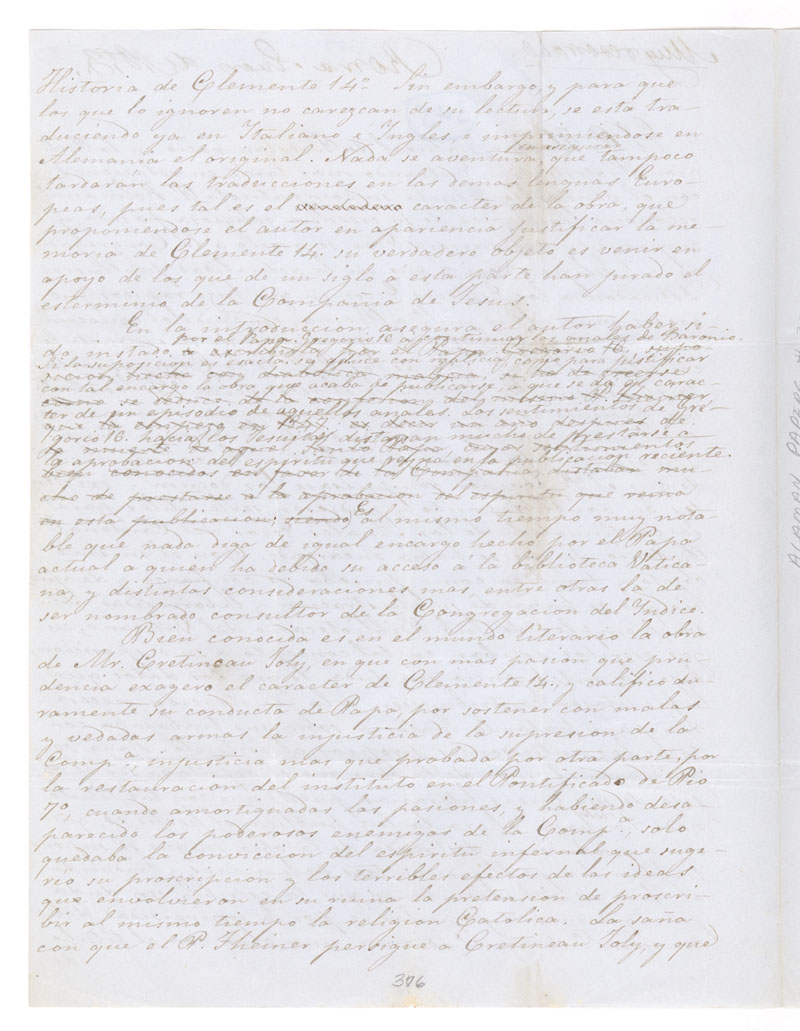 Historia de Clemente 14º. Sin embargo, y para que
los que lo ignoren no carezcan de su lectura, se esta tra-
duciendo ya en Italiano e Ingles, e imprimiendose en
Alemania el original. Nada se aventura en asegurar que tampoco
tardarán las traducciones en las demas lenguas Euro-
peas, pues tal es el verdadero caracter de la obra, que
proponiendose el autor en apariencia justificar la me-
moria de Clemente 14. su verdadero objeto es venir en
apoyo de los que de un siglo a esta parte han jurado el
esterminio de la Compania de Jesus.
En la introduccion asegura el autor haber si-
do instado por el Papa Gregorio 16 a continuar los anales de Baronio.
Si la suposicion es exacta,
con tal encargo la obra, que acaba de publicarse, a que se da el carac-
ter de un episodio de aquellos anales. Los sentimientos de Gre-
gorio 16. hacia los Jesuitas distaban mucho de prestarse a
la aprobacion del espiritu que reina en la publicacion reciente.
bien conocidos en favor de la Compania, distaban mu-
cho de prestarse a la aprobacion del espiritu que reina
en esta publicacion; siendo Es al mismo tiempo muy nota-
ble que nada diga de igual encargo hecho por el Papa
actual a quien ha debido su acceso á la biblioteca Vatica-
na, y distintas consideraciones mas, entre otras la de
ser nombrado consultor de la Congregacion del Indice.
Bien conocida es en el mundo literario la obra
de Mr. Cretineau Joly, en que con mas pasion que pru-
dencia exagero el caracter de Clemente 14., y califico du-
ramente su conducta de Papa, por sostener con malas
y vedadas armas la injusticia de la supresion de la
Comp.ª, injusticia mas que probada por otra parte, por
la restauracion del instituto en el Pontificado de Pio
7º, cuando amortiguadas las pasiones, y habiendo desa-
parecido los poderosos enemigos de la Comp.ª, solo
quedaba la conviccion del espiritu infernal que suge-
rio su proscripcion y los terribles efectos de las ideas
que envolvieron en su ruina la pretension de proscri-
bir al mismo tiempo la religion Catolica. La saña
con que el P. Theiner persigue a Cretineau Joly, y que
376
ALAMAN PAPERS